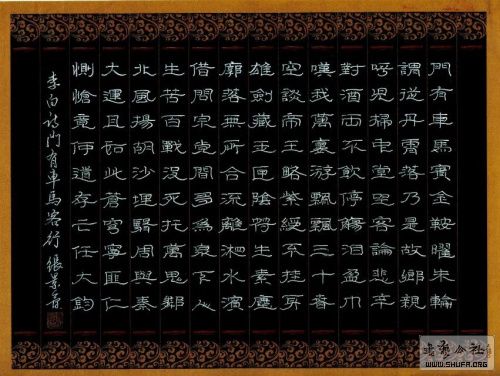 門有車馬賓金鞍曜朱輪
謂從丹霄落乃是故鄉親
呼兒掃中堂坐客論悲辛
對酒兩不飲停觴泪盈巾
嘆我萬裏游飄飄三十春
空談帝王略紫綬不挂身
雄劍藏玉匣陰符生素塵
廓落無所合流離湘水濱
借問宗黨間多為泉下人
生苦百戰役死托萬鬼鄰
北風揚胡沙埋翳周與秦
大運且如此蒼穹寧匪仁
惻愴竟何道存亡任大鈞
李白詩門有車馬客行 張景
書法公社
WWW.SHUFA.ORG